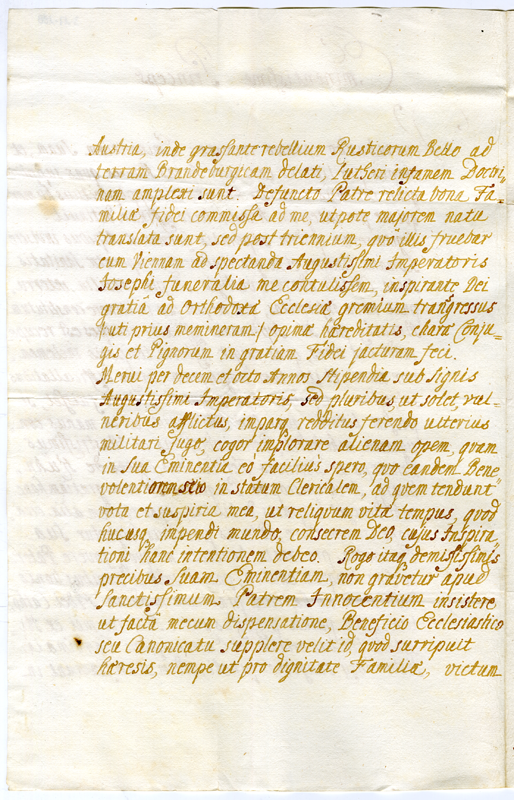 Austria, inde grassante rebellium Rusticorum Bello ad
terram Brandeburgicam delati, Lutheri infamem Doctri-
nam amplexi sunt. Defuncto Patre relicta bona Fa-
miliæ fidei commissa ad me, utpote majorem natu
translata sunt, sed post triennium, quô illis fruebar
cum Viennam ad spectanda Augustissimi Imperatoris
Josephi funeralia me contulissem, inspirante Dei
gratiâ ad Orthodoxæ Ecclesiæ gremium transgressus
/uti prius memineram/ opimæ hæreditatis, charæ Conju-
gis et Pignorum in gratiam Fidei jacturam feci.
Merui per decem et octo Annos Stipendia sub Signis
Augustissimi Imperatoris, sed pluribus, ut solet, vul-
neribus afflictus, impar redditus ferendo ulterius
militari Jugo, cogor implorare alienam opem, quam
in Sua Eminentia eo facilius spero, quo eandem Bene
volentiorem scio in statum Clericalem, ad quem tendunt
vota et suspiria mea, ut reliquum vitæ tempus, quod
hucusq impendi mundo, consecrem Deo, cujus Inspira
tioni hanc intentionem debeo. Rogo itaq demississimis
precibus Suam Eminentiam, non gravetur apud
Sanctissimum Patrem Innocentium insistere
ut factâ mecum dispensatione, Beneficio Ecclesiastico
seu Canonicatu supplere velit id, quod surripuit
hæresis, nempe ut pro dignitate Familiæ, victum